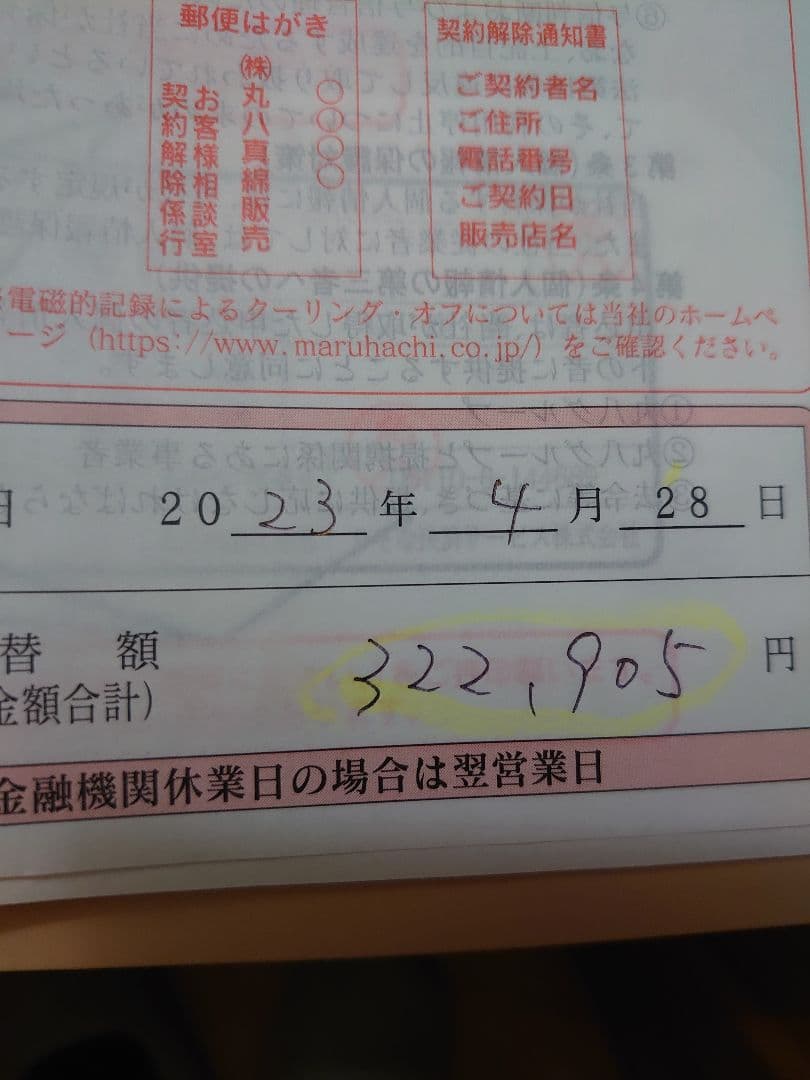 郵便はがき
㈱丸八真綿販売
お客様相談室
契約解除係行
○○○○
契約解除通知書
ご契約者名
ご住所
電話番号
ご契約日
販売店名
電磁的記録によるクーリング・オフについては当社のホームペ
ージ（https://www.maruhachi.co.jp/）をご確認ください。
日 2023年 4月 28日
替 額 322,905 円
金額合計)
金融機関休業日の場合は翌営業日